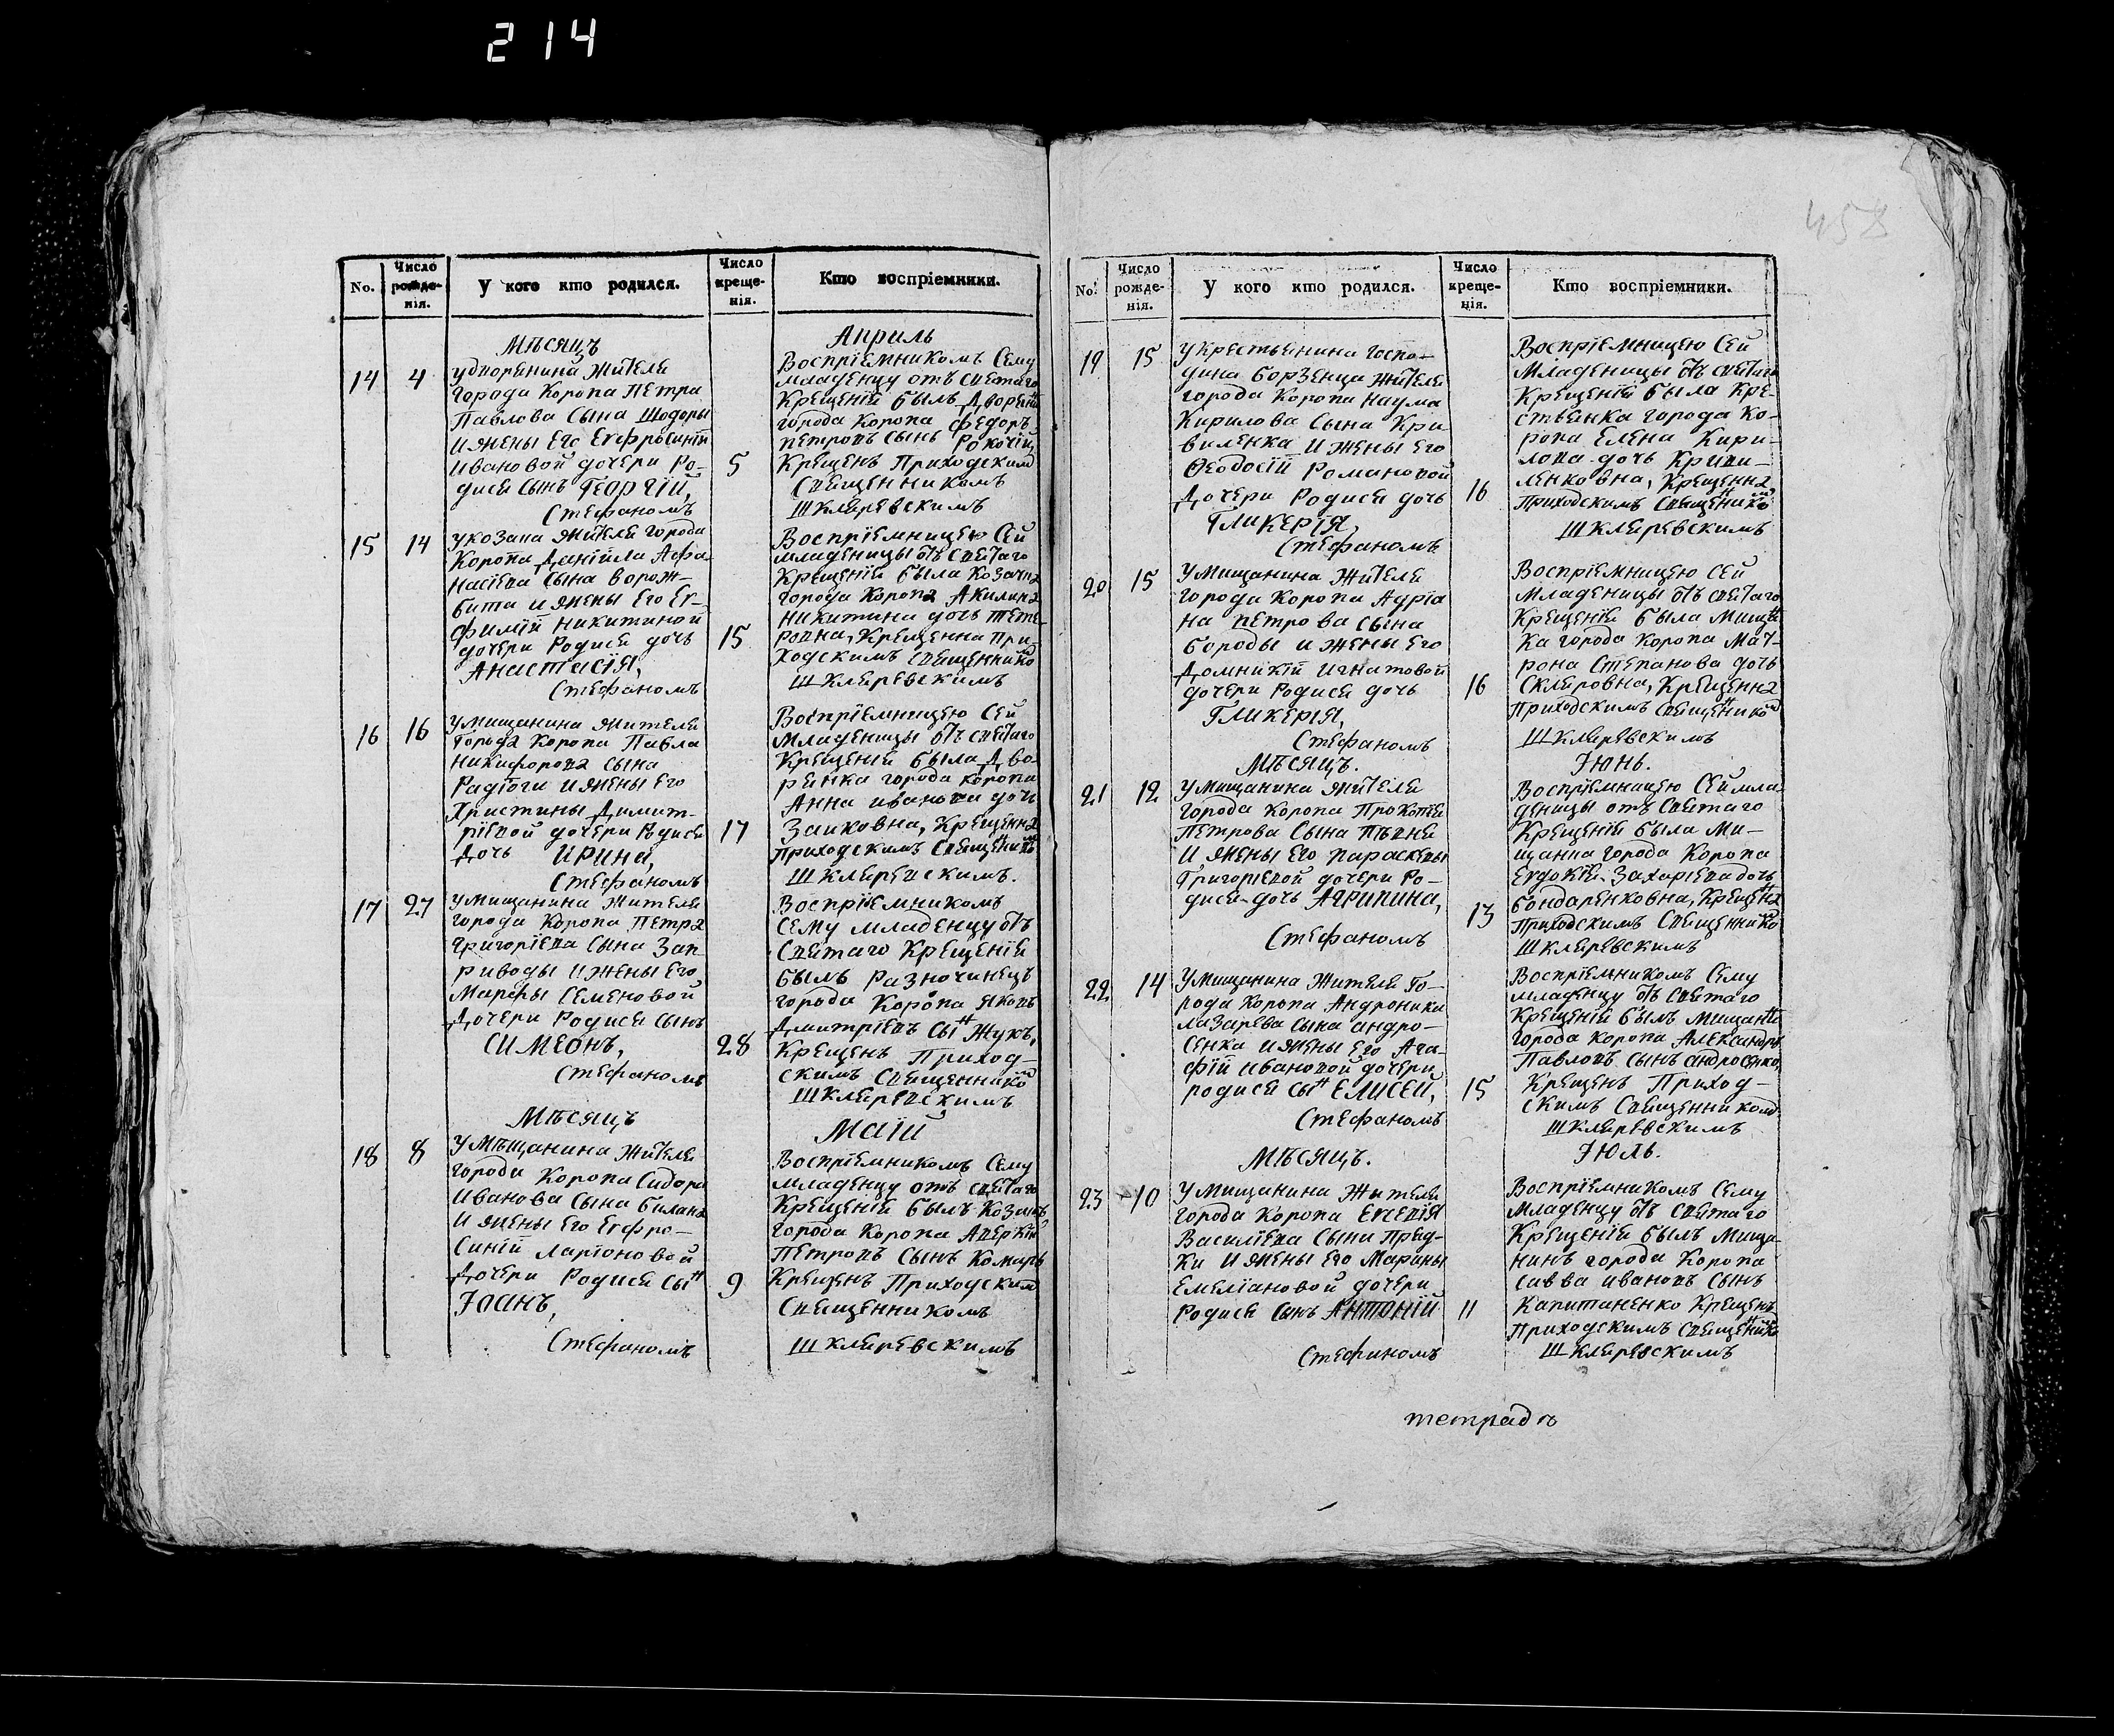 214
458
No. Число рожде-нія. У кого кто родился. Число креще-нія. Кто воспріемники.
Мѣсяцъ Априль
14 4 У дворянина жителя
города Коропа Петра
Павлова сына Шодоры
и жены его Евфросиніи
Ивановой дочери ро-
дися сынъ Георгій,
Стефаномъ
Воспріемникомъ сему
младенцу отъ святаго
крещенія былъ дворян
города Коропа Федоръ
Петровъ сынъ Рокочій,
5 Крещенъ приходским
священникомъ
Шкляревскимъ
15 14 У козака жителя города
Коропа Даніила Афа-
насіева сына Ворож-
бита и жены его Ев-
фиміи Никитиной
дочери родися дочь
Анастасія,
Стефаномъ
Воспріемницею сей
младеницы отъ святаго
крещенія была козачка
города Коропа Акилина
Никитина дочь Тете-
15 ровна, крещенна при-
ходскимъ священнико
Шкляревскимъ
16 16 У мищанина жителя
города Коропа Павла
Никифорова сына
Радюги и жены его
Христины Димит-
ріевой дочери родися
дочь Ирина,
Стефаномъ
Воспріемницею сей
младеницы отъ святаго
крещенія была дво-
рянка города Коропа
Анна Иванова дочь
17 Заиковна, крещенна
приходскимъ священико
Шкляревскимъ.
17 27 У мищанина жителя
города Коропа Петра
Григоріева сына Зап-
риводы и жены его
Марфы Семеновой
дочери родися сынъ
Симеонъ,
Стефаномъ
Воспріемникомъ
сему младенцу отъ
святаго крещенія
былъ разночинецъ
города Коропа Яковъ
Дмитріевъ сын Жукъ,
28 Крещенъ приход-
скимъ священнико
Шкляревскимъ
Мѣсяцъ Маій
18 8 У мѣщанина жителя
города Коропа Сидора
Иванова сына Билана
и жены его Евфро-
синіи Ларіоновой
дочери родися сын
Іоанъ,
Стефаномъ
Воспріемникомъ сему
младенцу отъ святаго
крещенія былъ козакъ
города Коропа Аверкій
Петровъ сынъ Комаръ
9 Крещенъ приходским
священникомъ
Шкляревскимъ
No. Число рожде-нія. У кого кто родился. Число креще-нія. Кто воспріемники.
19 15 У крестьянина госпо-
дина Борзенца жителя
города Коропа Наума
Кирилова сына Кри-
виленка и жены его
Феодосіи Романовой
дочери родися дочь
Гликерія,
Стефаномъ
Воспріемницею сей
младеницы отъ святаго
крещенія была кре-
стьянка города Ко-
ропа Елена Кири-
лова дочь Криви-
ленковна, крещенна
16 приходскимъ священико
Шкляревскимъ
20 15 У мищанина жителя
города Коропа Адріа
на Петрова сына
Бороды и жены его
Домникіи Игнатовой
дочери родися дочь
Гликерія,
Стефаномъ
Воспріемницею сей
младеницы отъ святаго
крещенія была мищан
ка города Коропа Мат-
рона Степанова дочь
16 Скляровна, крещенна
приходскимъ священико
Шкляревскимъ
Мѣсяцъ. Іюнь.
21 12 У мищанина жителя
города Коропа Прокопія
Петрова сына Пѣвня
и жены его Параскевы
Григоріевой дочери ро-
дися дочь Агрипина,
Стефаномъ
Воспріемницею сей мла-
деницы отъ святаго
крещенія была ми-
щанка города Коропа
Евдокія Захаріева дочь
Бондаренковна, крещенна
13 приходскимъ священнико
Шкляревскимъ
22 14 У мищанина жителя го-
рода Коропа Андроника
Лазарева сына Андро-
сенка и жены его Ага-
фіи Ивановой дочери
родися сын Елисей,
Стефаномъ
Воспріемникомъ сему
младенцу отъ святаго
крещенія былъ мищанин
города Коропа Александръ
Павловъ сынъ Андросенко,
15 Крещенъ приход-
скимъ священником
Шкляревскимъ
Мѣсяцъ. Іюль.
23 10 У мищанина жителя
города Коропа Евсевія
Василіева сына Пряд-
ки и жены его Марины
Емеліановой дочери
родися сынъ Антоній
Стефаномъ
Воспріемникомъ сему
младенцу отъ святаго
крещенія былъ мища-
нинъ города Коропа
Савва Ивановъ сынъ
11 Капитаненко крещенъ
приходскимъ священико
Шкляревскимъ
тетрадъ